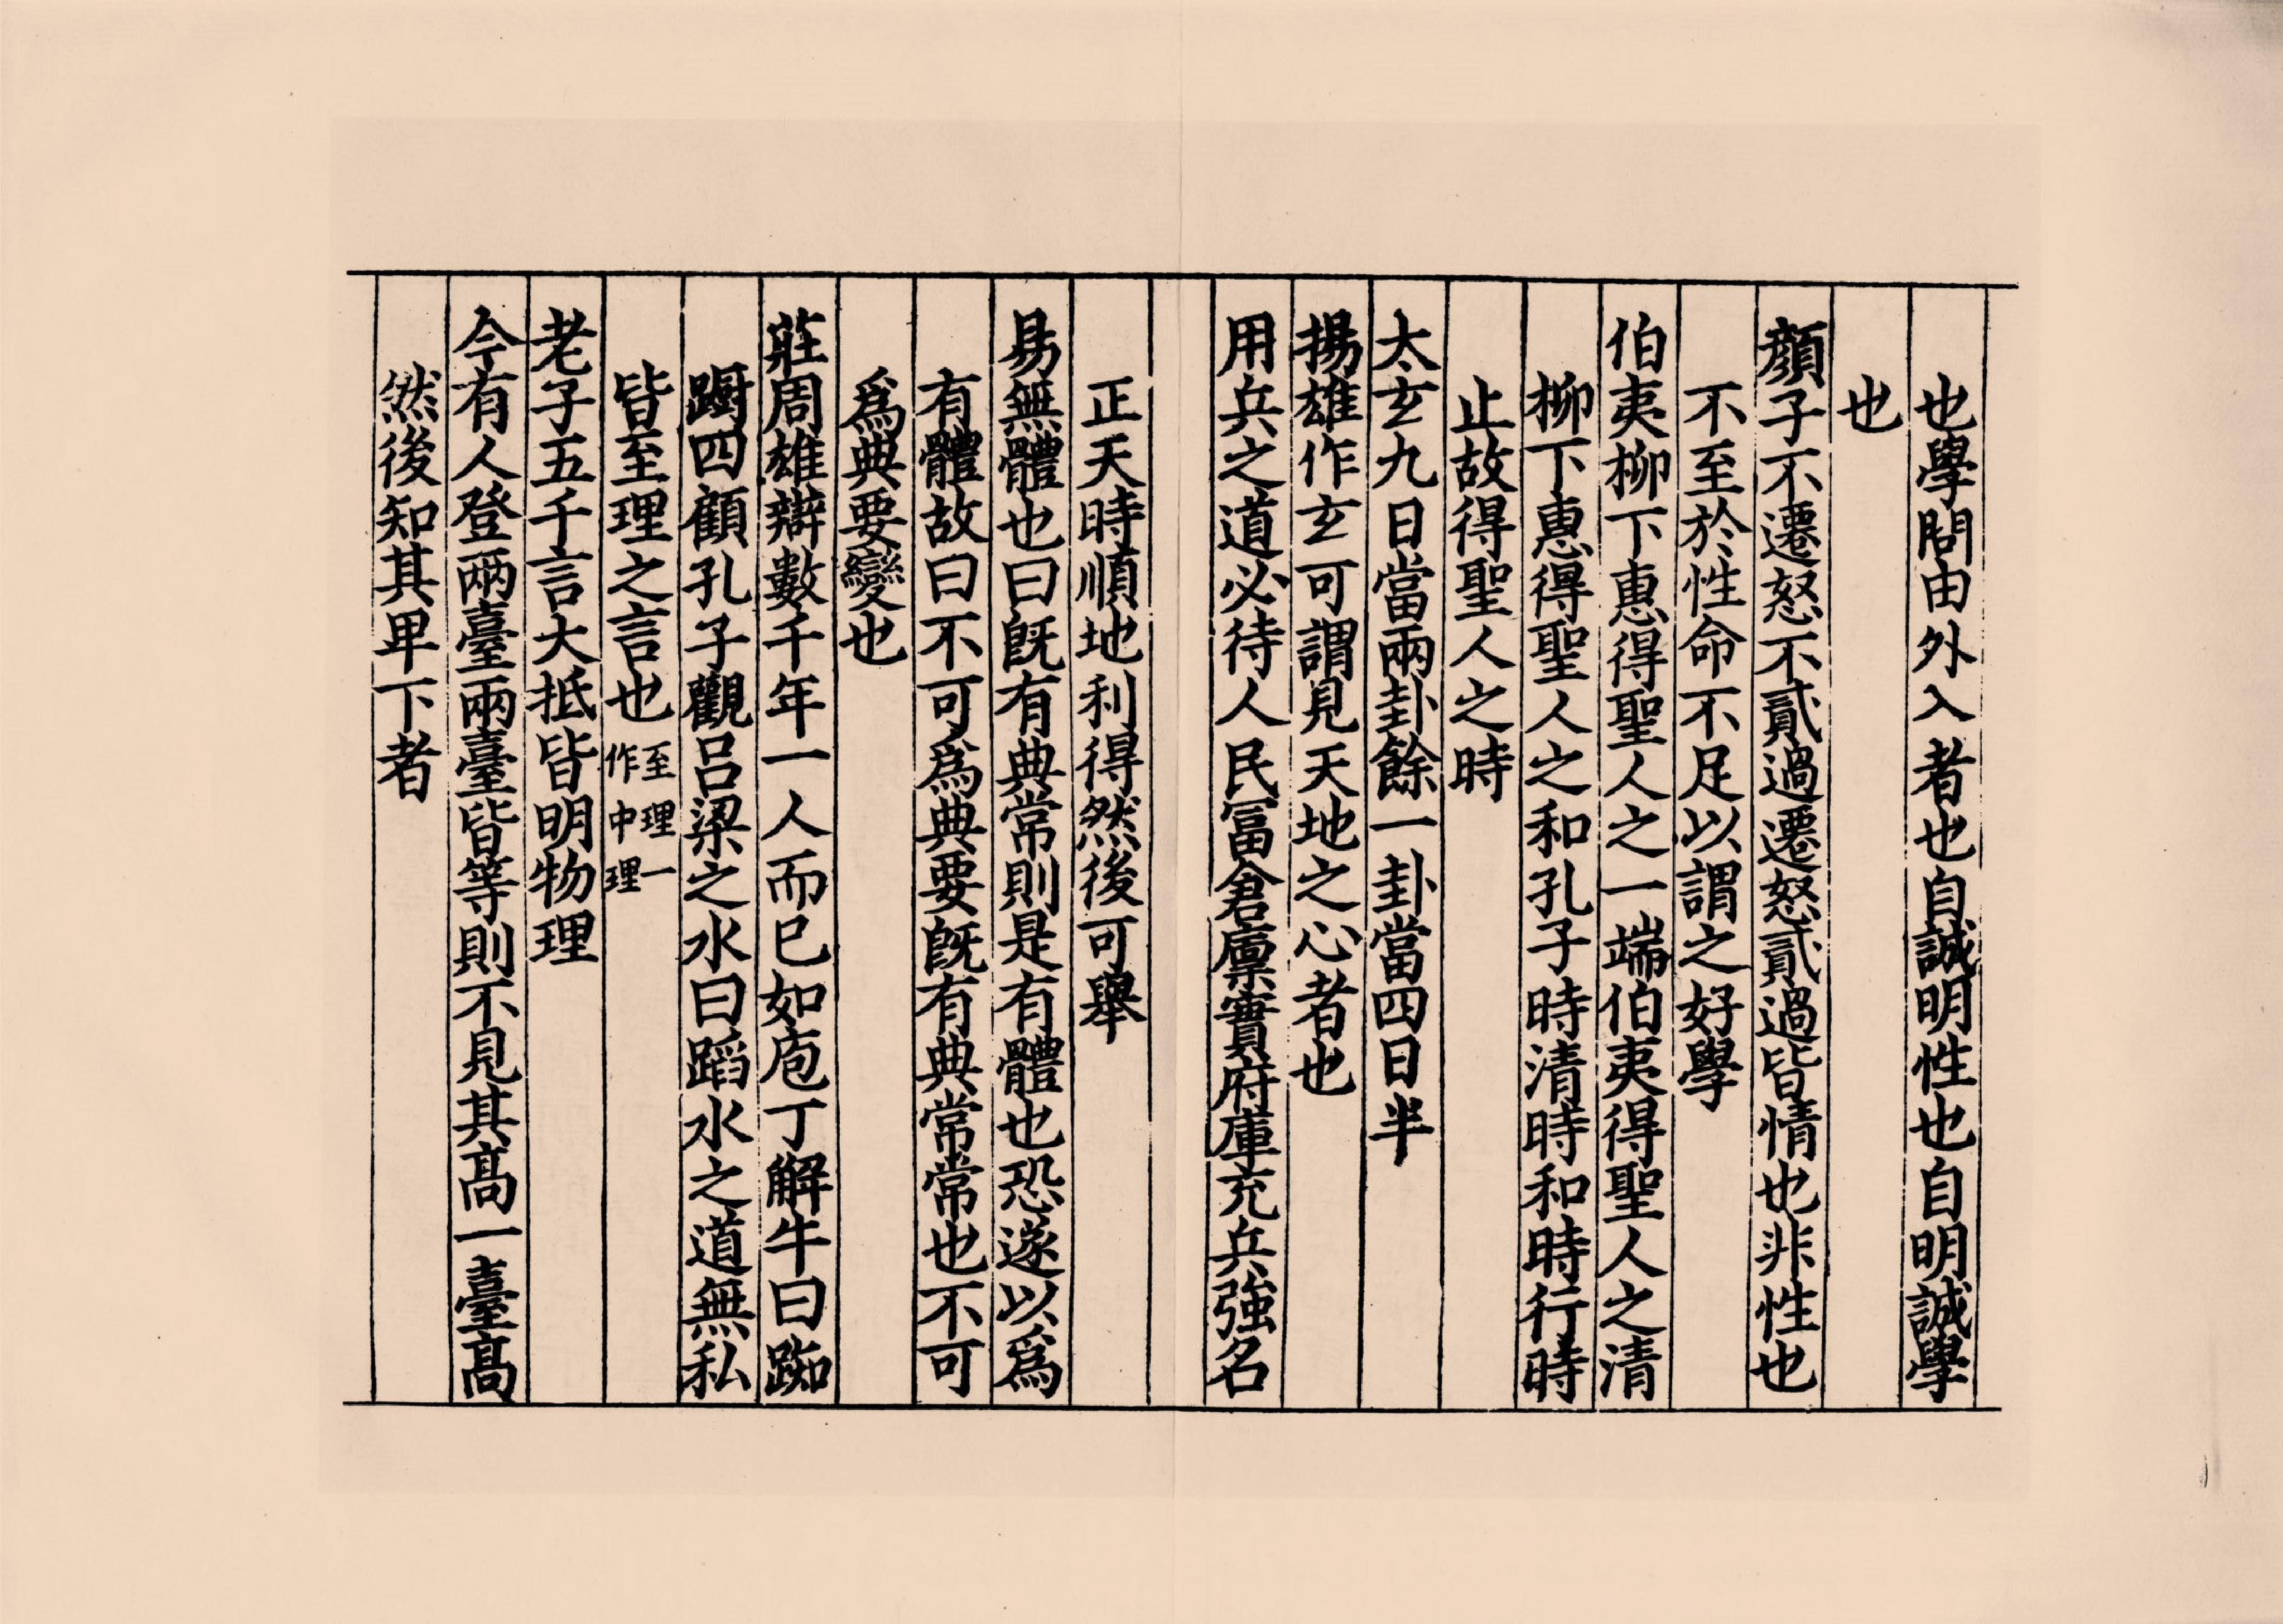 也學問由外入者也自誠明性也自明誠學
也
顔子不遷怒不貳過遷怒貳過皆情也非性也
不至於性命不足以謂之好學
伯夷柳下惠得聖人之一端伯夷得聖人之清
柳下惠得聖人之和孔子時清時和時行時
止故得聖人之時
太玄九日當兩卦餘一卦當四日半
揚雄作玄可謂見天地之心者也
用兵之道必待人民冨倉廩實府庫充兵強名
正天時順地利得然後可舉
易無體也曰旣有典常則是有體也恐遂以爲
有體故曰不可爲典要旣有典常常也不可
爲典要變也
莊周雄辯數千年一人而已如庖丁解牛曰踟
蹰四顧孔子觀呂梁之水曰蹈水之道無私
皆至理之言也至理一作中理
老子五千言大抵皆明物理
今有人登兩臺兩臺皆等則不見其髙一臺髙
然後知其卑下者